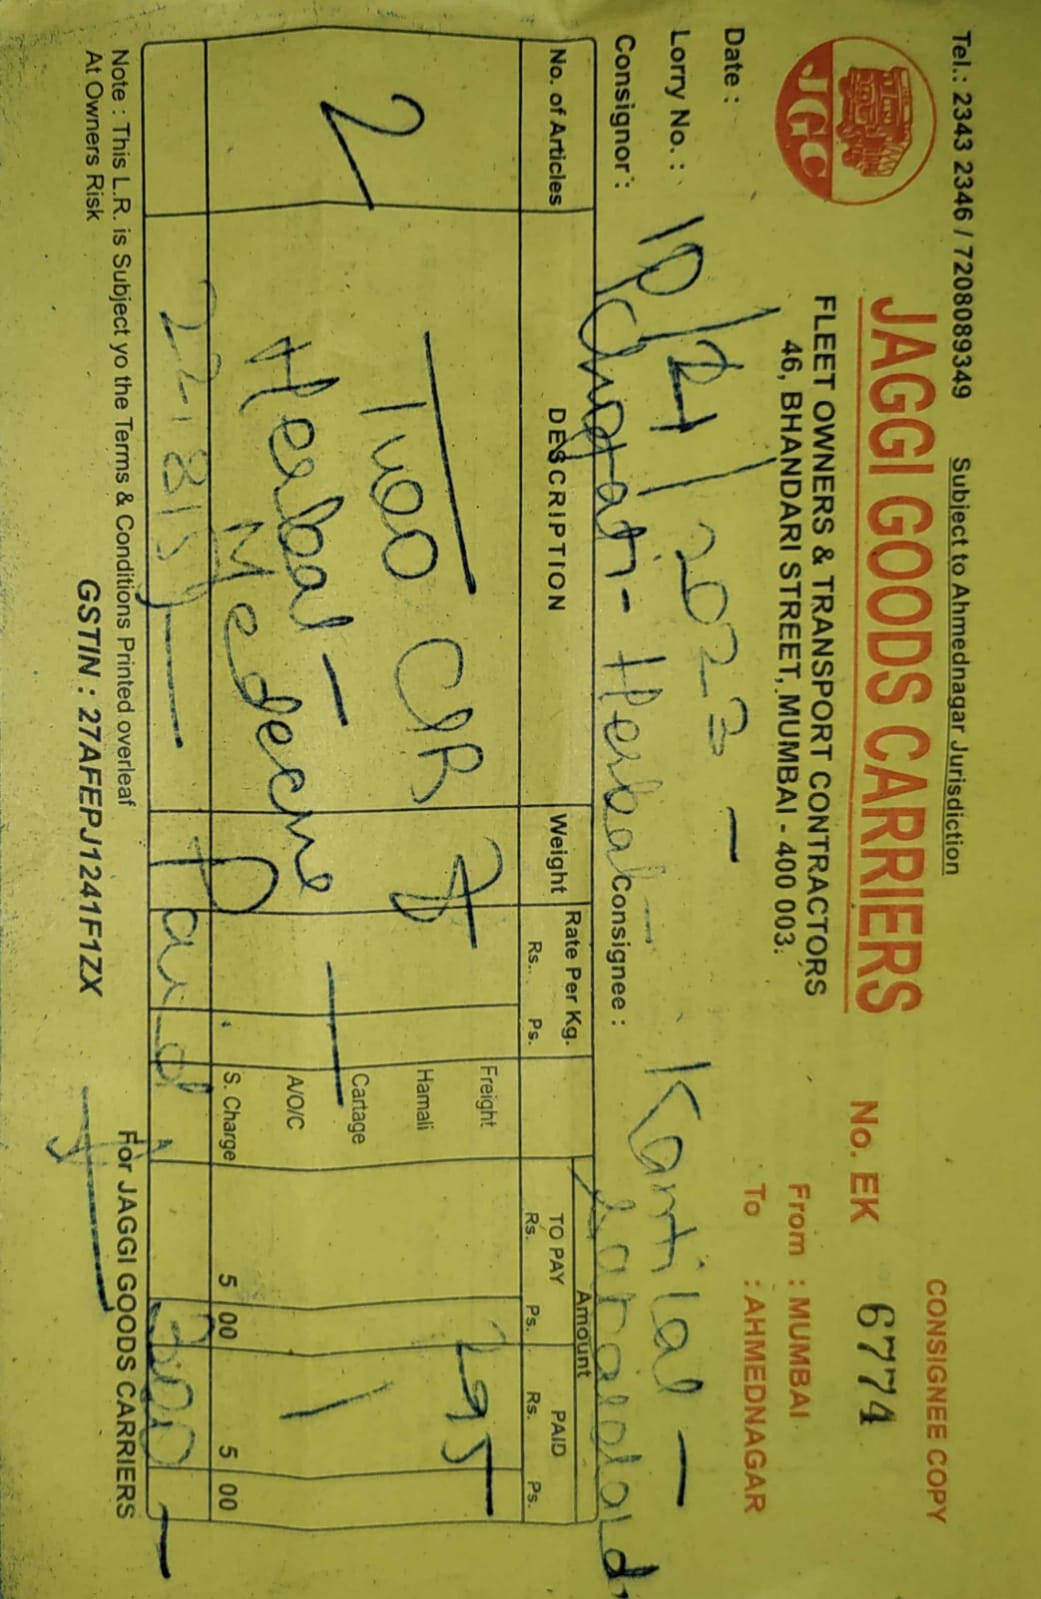 Tel.: 2343 2346 / 7208089349 Subject to Ahmednagar Jurisdiction
CONSIGNEE COPY
JGC
JAGGI GOODS CARRIERS
No. EK 6774
FLEET OWNERS & TRANSPORT CONTRACTORS
46, BHANDARI STREET, MUMBAI - 400 003.
From : MUMBAI
To : AHMEDNAGAR
Date : 2023
Lorry No. :
Consignor : Herbal Consignee : Kantilal
No. of Articles DESCRIPTION Weight Rate Per Kg. Amount
Rs. Ps. TO PAY PAID
Rs. Ps. Rs. Ps.
2 Two C/B Freight 295
Hamali
Herbal Cartage
A/O/C
S. Charge 5 00 5 00
Paid 300
Note : This L.R. is Subject yo the Terms & Conditions Printed overleaf
At Owners Risk
GSTIN : 27AFEPJ1241F1ZX
For JAGGI GOODS CARRIERS